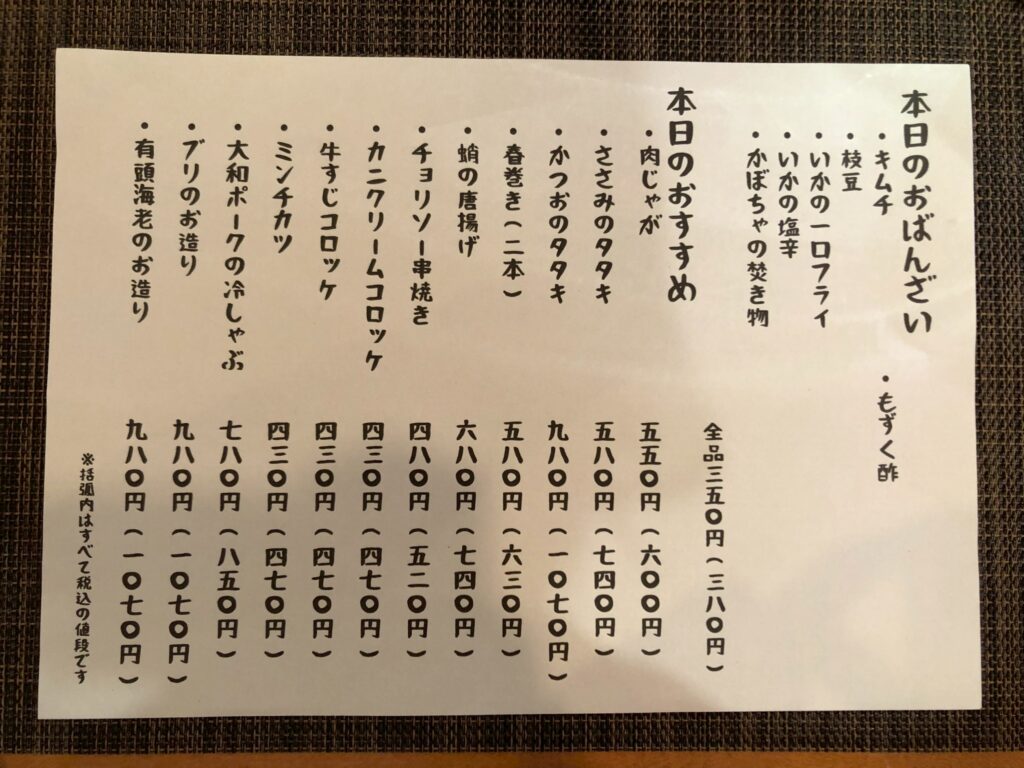 本日のおばんざい
・キムチ
・もずく酢
・枝豆
・いかの一口フライ
・いかの塩辛
・かぼちゃの焚き物
全品三五〇円(三八〇円)
本日のおすすめ
・肉じゃが 五五〇円(六〇〇円)
・ささみのタタキ 五八〇円(七四〇円)
・かつおのタタキ 九八〇円(一〇七〇円)
・春巻き(二本) 五八〇円(六三〇円)
・蛸の唐揚げ 六八〇円(七四〇円)
・チョリソー串焼き 四八〇円(五二〇円)
・カニクリームコロッケ 四三〇円(四七〇円)
・牛すじコロッケ 四三〇円(四七〇円)
・ミンチカツ 四三〇円(四七〇円)
・大和ポークの冷しゃぶ 七八〇円(八五〇円)
・ブリのお造り 九八〇円(一〇七〇円)
・有頭海老のお造り 九八〇円(一〇七〇円)
※括弧内はすべて税込の値段です